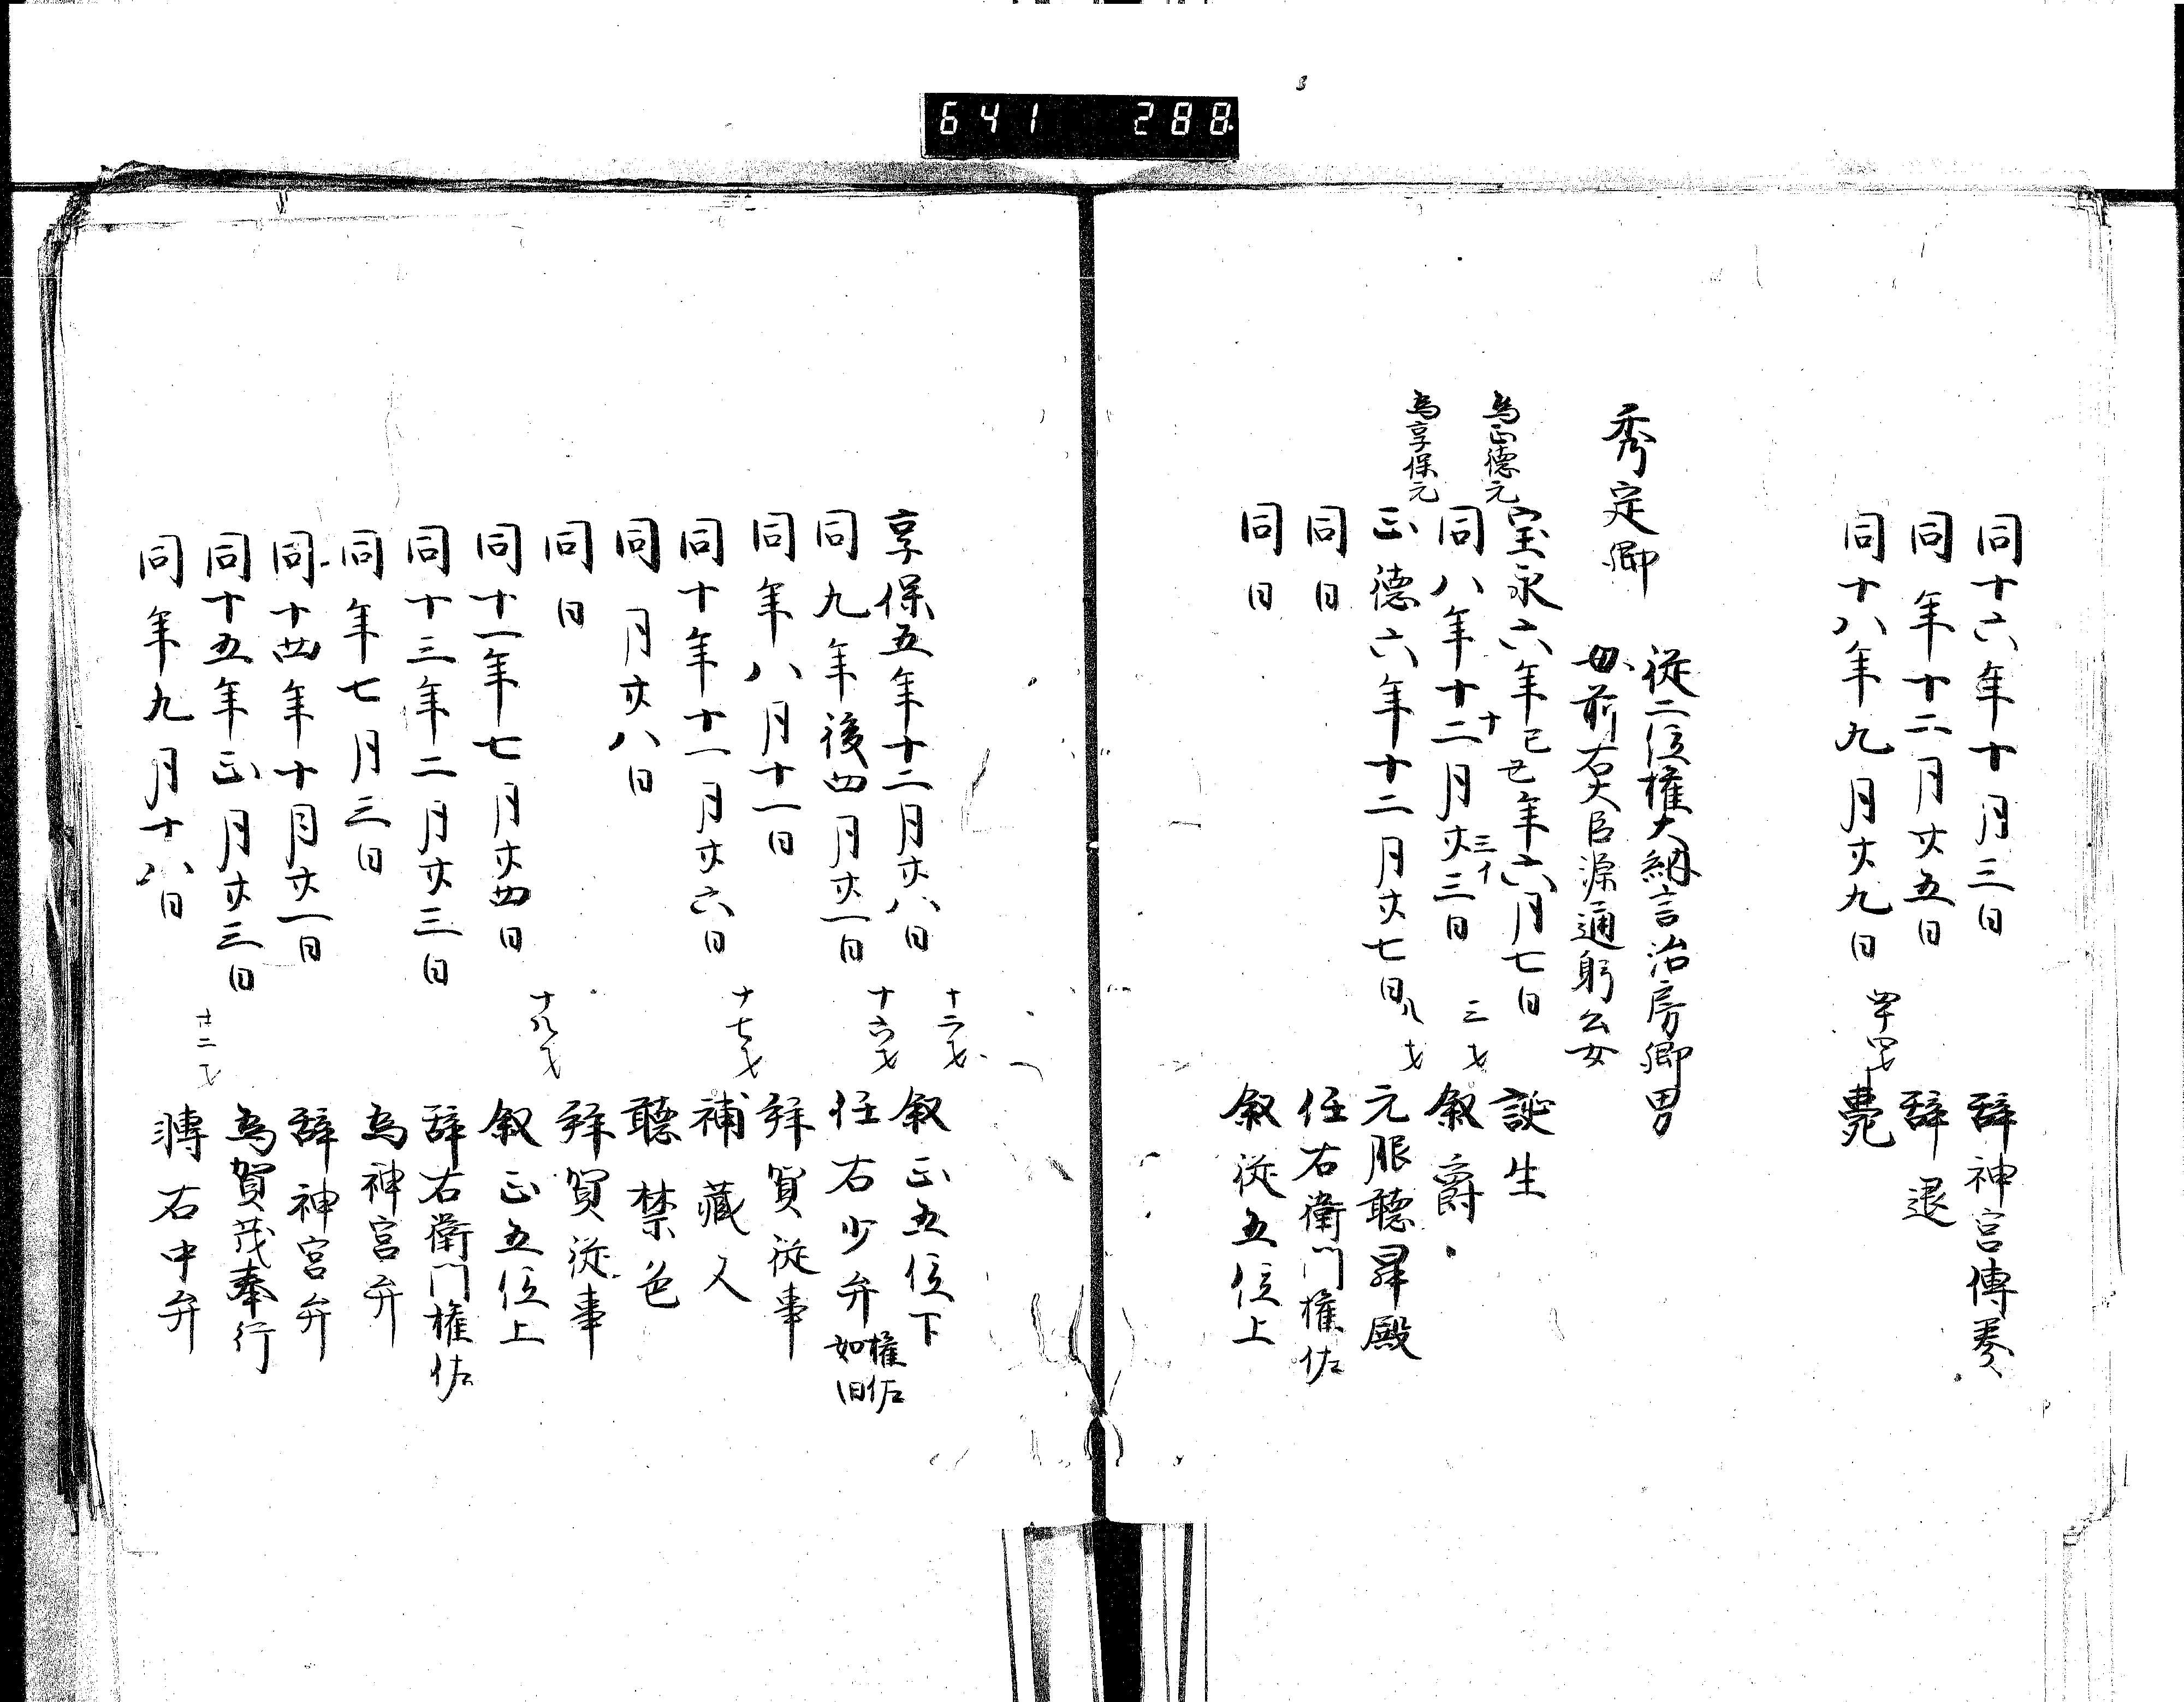 641 288
同十六年十月三日 辞神宮傳奏
同年十二月廿五日 辞退
同十八年九月廿九日 四十四才 薨
秀定卿 従二位権大納言治房卿男
母前右大臣源通躬公女
為正徳元
宝永六年己丑年六月七日 誕生
為享保元
同八年十二月廿三日 三才 叙爵
正徳六年十二月廿七日 八才 元服聴昇殿
同日 任右衛門権佐
同日 叙従五位上
享保五年十二月廿八日 十二才 叙正五位下
同九年後四月廿一日 十六才 任右少弁 権佐如旧
同年八月十一日 拝賀従事
同十年十一月廿六日 十七才 補蔵人
同月廿八日 聴禁色
同日 拝賀従事
同十一年七月廿四日 十八才 叙正五位上
同十三年二月廿三日 辞右衛門権佐
同年七月三日 為神宮弁
同十四年十月廿一日 辞神宮弁
同十五年正月廿三日 為賀茂奉行
同年九月十八日 廿二才 轉右中弁